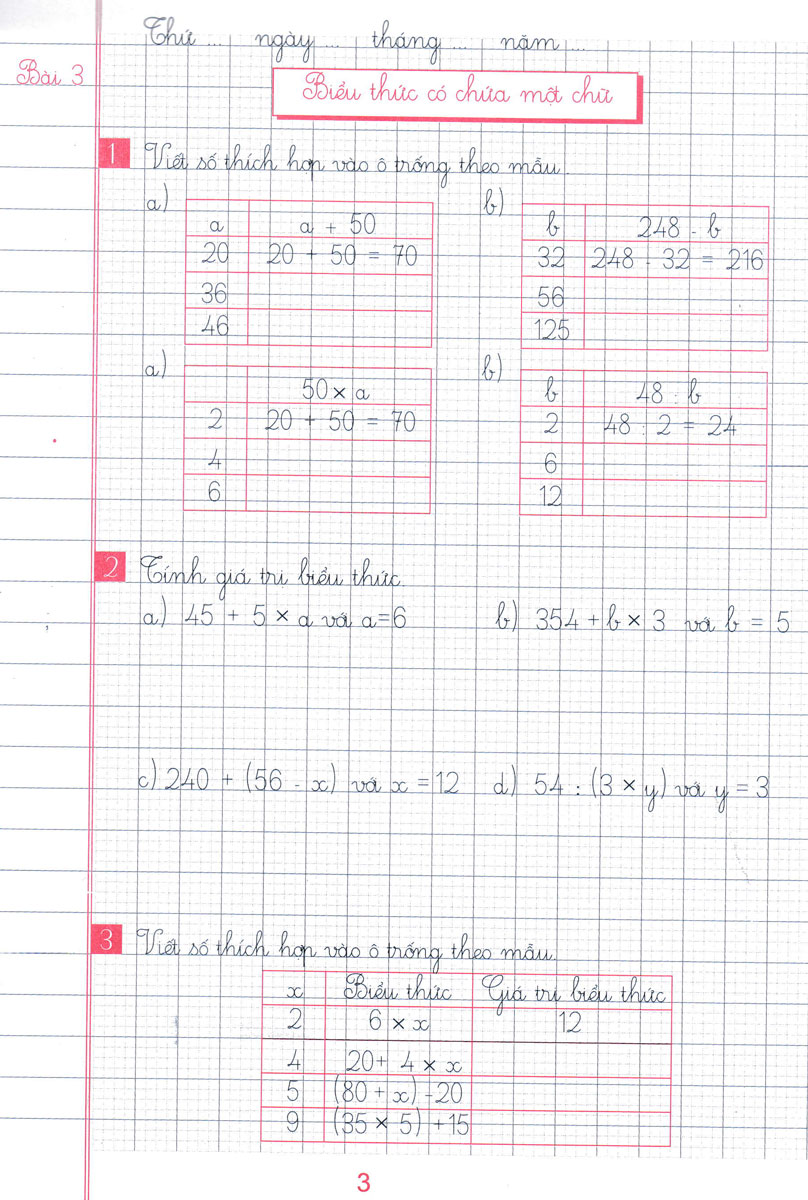 Thứ ... ngày ... tháng ... năm ...
Bài 3
Biểu thức có chứa một chữ
1 Viết số thích hợp vào ô trống theo mẫu.
a)
a a + 50
20 20 + 50 = 70
36
46
b)
b 248 - b
32 248 - 32 = 216
56
125
a)
50 × a
2 20 + 50 = 70
4
6
b)
b 48 : b
2 48 : 2 = 24
6
12
2 Tính giá trị biểu thức.
a) 45 + 5 × a với a=6 b) 354 + b × 3 với b = 5
c) 240 + (56 - x) với x = 12 d) 54 : (3 × y) với y = 3
3 Viết số thích hợp vào ô trống theo mẫu.
x Biểu thức Giá trị biểu thức
2 6 × x 12
4 20+ 4 × x
5 (80 + x) -20
9 (35 × 5) +15
3